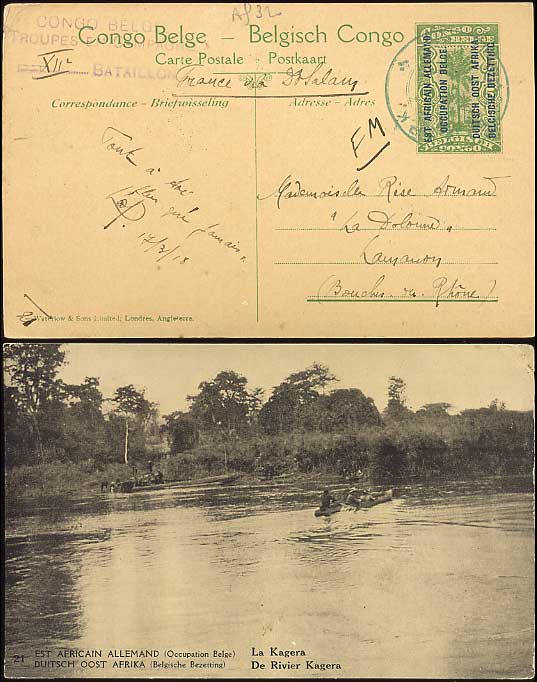 AP32
CONGO BELGE
TROUPES EN CAMPAGNE
XIIe
BATAILLON
Congo Belge – Belgisch Congo
Carte Postale - Postkaart
France via
Correspondance - Briefwisseling
Adresse - Adres
EST AFRICAIN ALLEMAND
OCCUPATION BELGE.
DUITSCH OOST AFRIKA
BELGISCHE BEZETTING.
CONGO
FM
Tout à toi
plus que jamais.
17/3/18
Mademoiselle Rose Armand
"La
Lamanon
(Bouches-du-Rhône)
Waterlow & Sons Limited, Londres, Angleterre.
21
EST AFRICAIN ALLEMAND (Occupation Belge)
DUITSCH OOST AFRIKA (Belgische Bezetting)
La Kagera
De Rivier Kagera